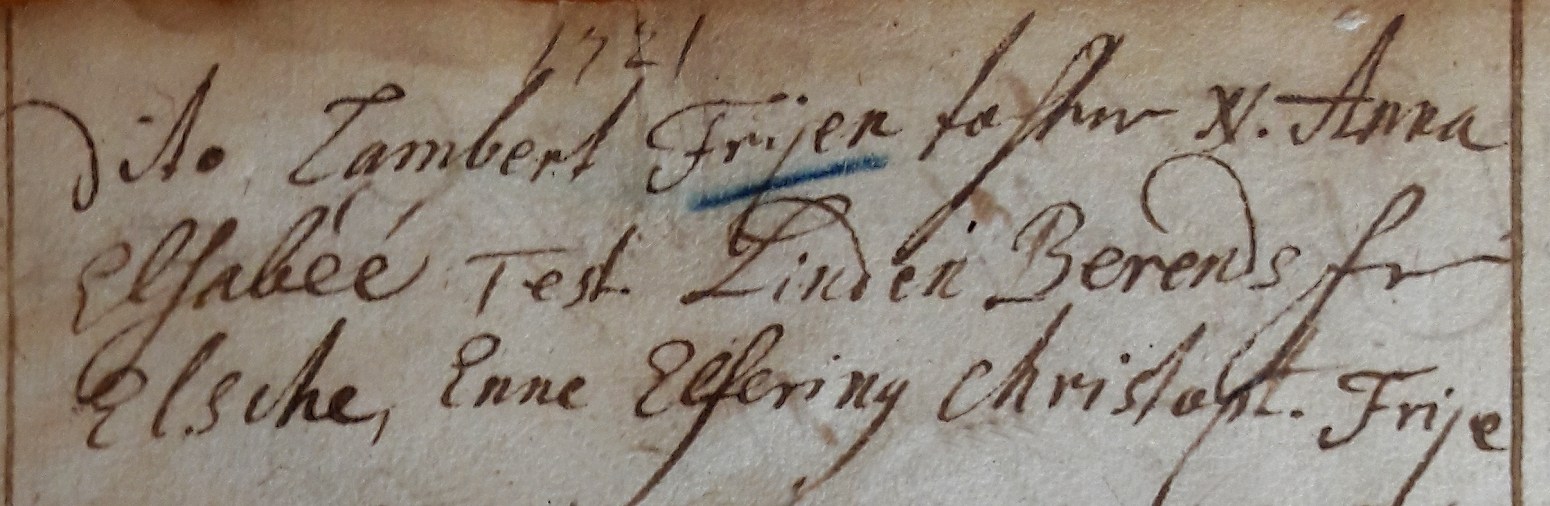 1721
Dito Lambert Frijen tochter N. Anna
Elsabéé Test. Linden Berends fr
Elsche, Enne Elfering Christoph. Frije